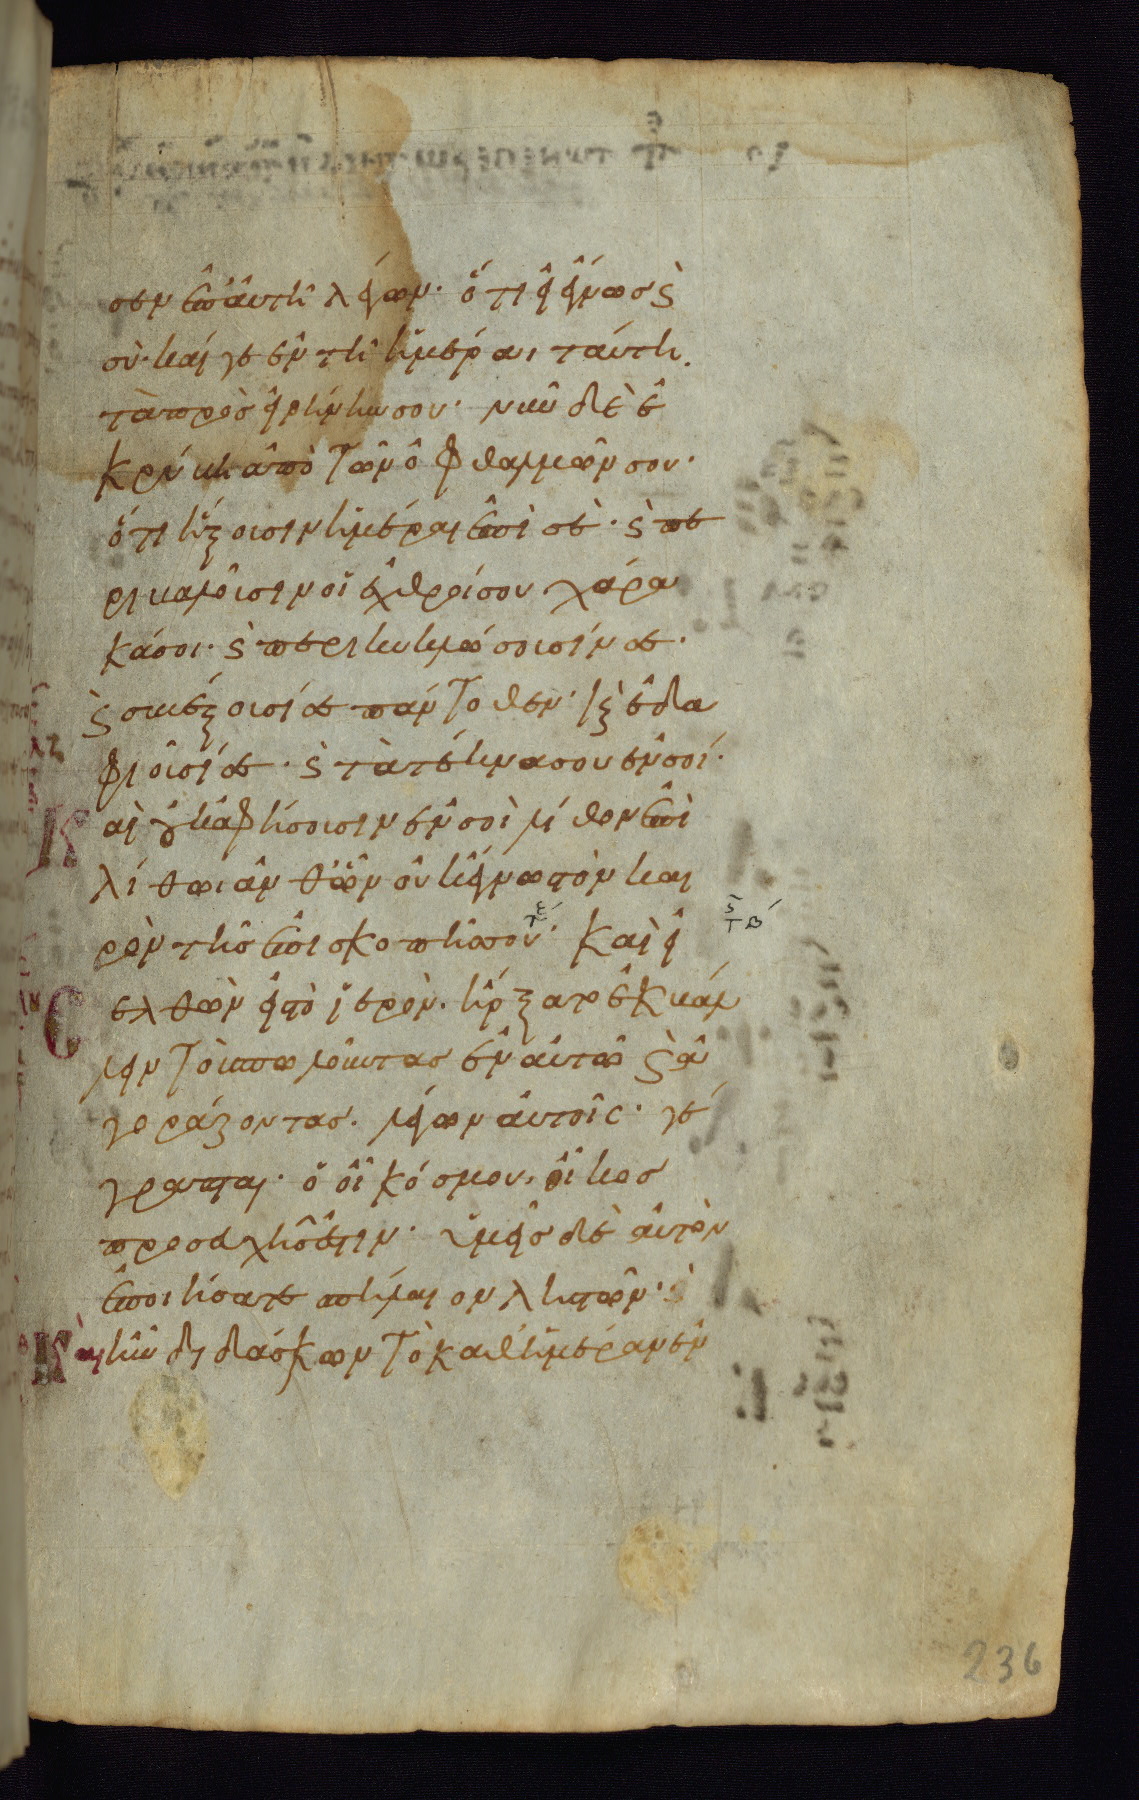 σεν ἐπ' αὐτῆ λέγων· ὅτι εἰ ἔγνως ϛ̀
σὺ· καί γε ἐν τῆ ἡμέραι ταύτη.
τὰ πρὸς εἰρήνην σου· νῦν δὲ ἐ
κρύβη ἀπὸ τῶν ὀφθαλμῶν σου·
ὅτι ἥξουσιν ἡμέραι ἐπὶ σὲ· ϛ̀ πε
ριβαλοῦσιν οἱ ἐχθροί σου χάρα
κά σοι· ϛ̀ περικυκλώσουσίν σε·
ϛ̀ συνέξουσί σε πάντοθεν· ϗ̀ ἐδα
φιοῦσί σε· ϛ̀ τὰ τέκνα σου ἐν σοί·
Καὶ οὐκ ἀφήσουσιν ἐν σοὶ λίθον ἐπὶ
λίθωι ἀνθ' ὧν οὐκ ἔγνως τὸν και
ρὸν τῆς ἐπισκοπῆς σου· Καὶ εἰ
σελθὼν εἰς τὸ ἱερὸν. ἤρξατο ἐκβάλ
λειν τοὺς πωλοῦντας ἐν αὐτῶ ϛ̀ ἀ
γοράζοντας. λέγων αὐτοῖς· γέ
γραπται· ὁ οἶκός μου, οἶκος
προσευχῆς ἐστιν· ὑμεῖς δὲ αὐτὸν
ἐποιήσατε σπήλαιον ληστῶν· ϛ̀
Καὶ ἦν διδάσκων τὸ καθ' ἡμέραν ἐν
236